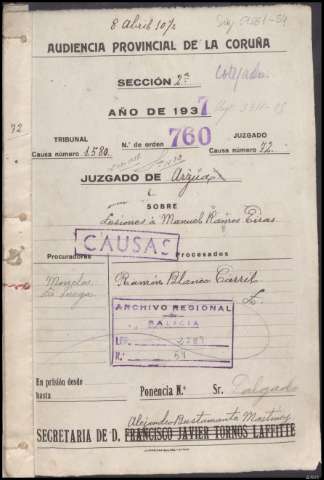 8 Abril 1072
AUDIENCIA PROVINCIAL DE LA CORUÑA
SECCIÓN 2ª
Cotejada
AÑO DE 1937
72
TRIBUNAL
Causa número 1.580
N.º de orden 760
JUZGADO
Causa número 72.
JUZGADO DE Arzúa
SOBRE
Lesiones á Manuel Ramos Eiras
CAUSAS
Procuradores
Procesados
Ramón Blanco Carril
ARCHIVO REGIONAL
GALICIA
LEG.
N.º
En prisión desde
hasta
Ponencia N.º
Sr. Delgado
Alejandro Bustamante Martínez
SECRETARIA DE D. FRANCISCO JAVIER TORNOS LAFFITTE